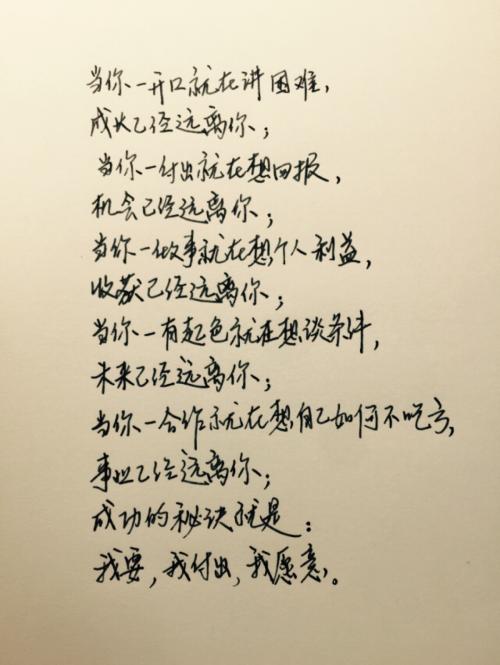 当你一开口就在讲困难，
成长已经远离你；
当你一付出就在想回报，
机会已经远离你；
当你一做事就在想个人利益，
收获已经远离你；
当你一有起色就在想谈条件，
未来已经远离你；
当你一合作就在想自己如何不吃亏，
事业已经远离你；
成功的秘诀就是：
我要，我付出，我愿意。